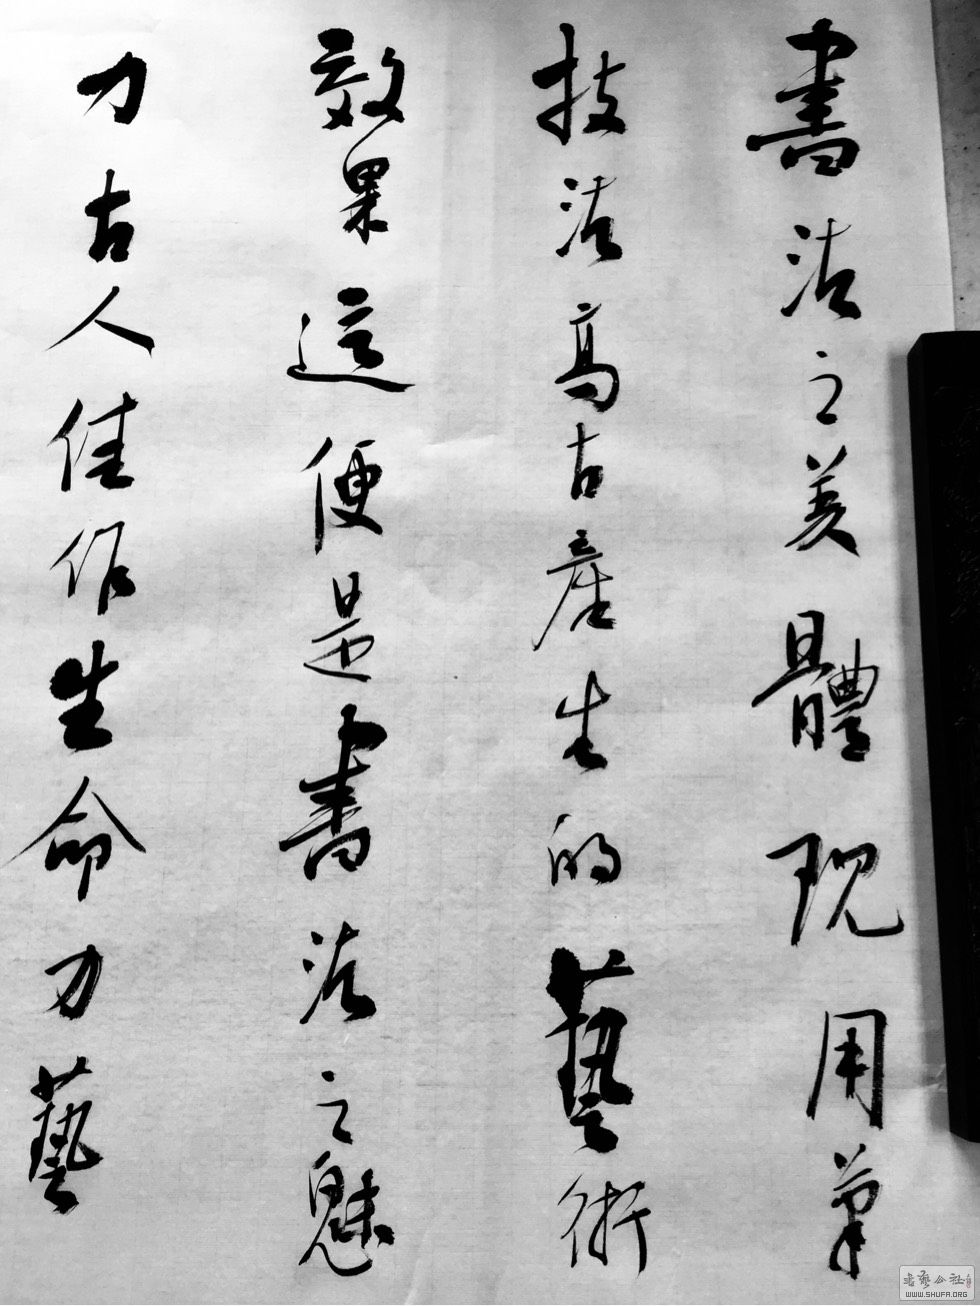 書法之美體現用筆
技法高古產生的藝術
效果這便是書法之魅
力古人佳作生命力藝
書藝公社
WWW.SHUFA.ORG